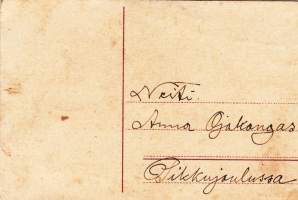 Neiti.
Anna Ojakangas
Pikkujoulussa